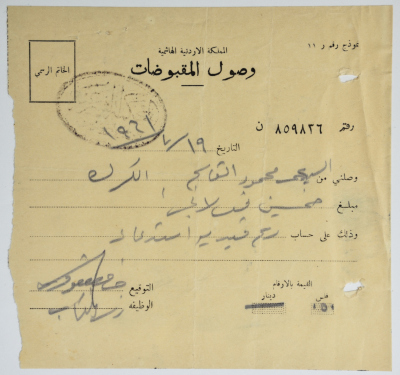 نموذج رقم ر ١١
المملكة الاردنية الهاشمية
وصول المقبوضات
الخاتم الرسمي
رقم ٨٥٩٨٢٦ ن
التاريخ ١٩/
وصلني من السيد محمود القاسم الكرك
مبلغ خمسين فلس لا غير
وذلك على حساب رسم قيدية استدعاء
القيمة بالارقام
فلس دينار
التوقيع
الوظيفه